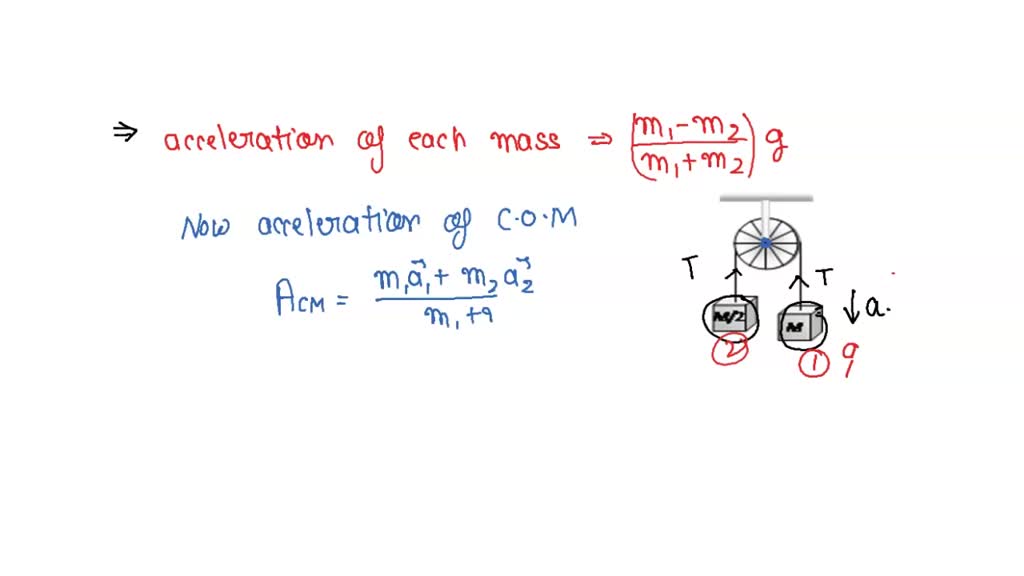 ⇒ acceleration of each mass ⇒ (m₁-m₂/m₁+m₂) g
Now acceleration of C.O.M
A_CM = m₁a⃗₁ + m₂a⃗₂ / m₁+
T
T
M/2
M
↓a.
②
①